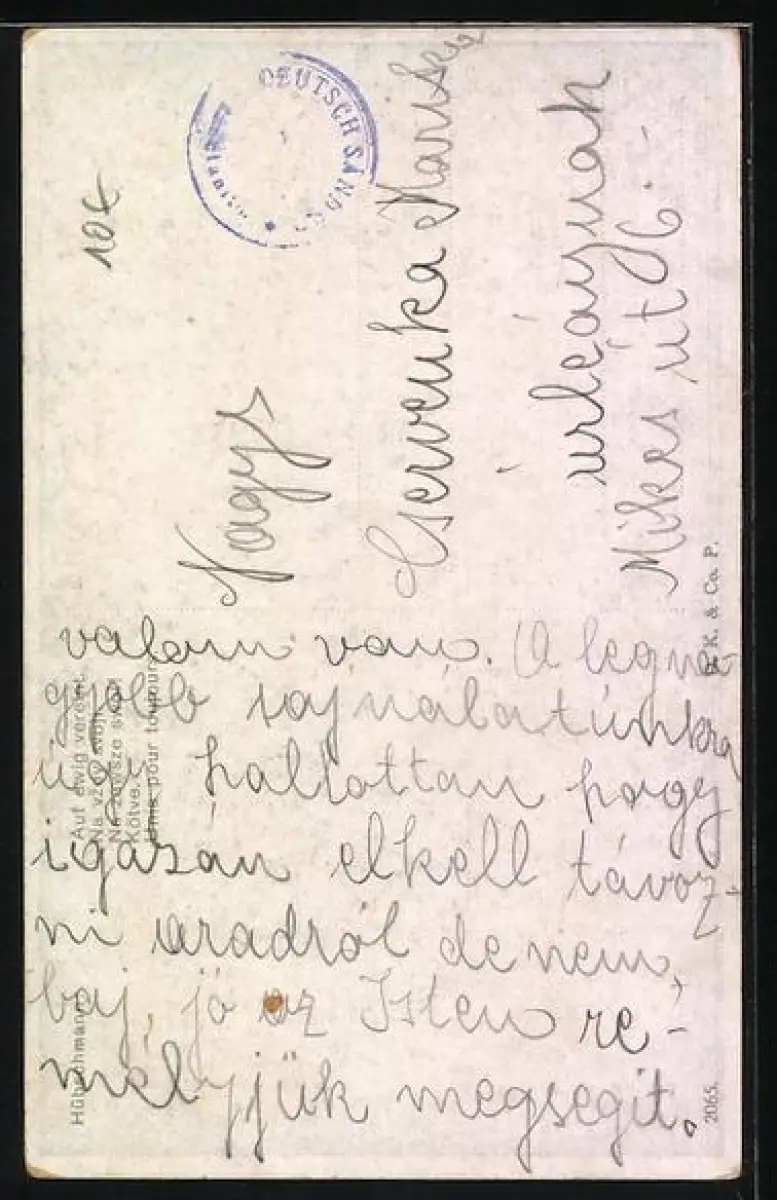 DEUTSCH SÁNDOR
10 f
Nagys
Cservenka Mariska
úrleáynak
Mikes út 6.
valam van. A legna-
gyobb sajnálatúnkra
úgy hallottam hogy
igazán elkell távoz-
ni aradról de nem
baj, jó az Isten re-
mélyjük megsegit.
Auf ewig vereint.
Na vždy svoji.
Na zawsze
Kötve.
Unis pour toujours.
Hübschmann
K. & Co. P.
2065.